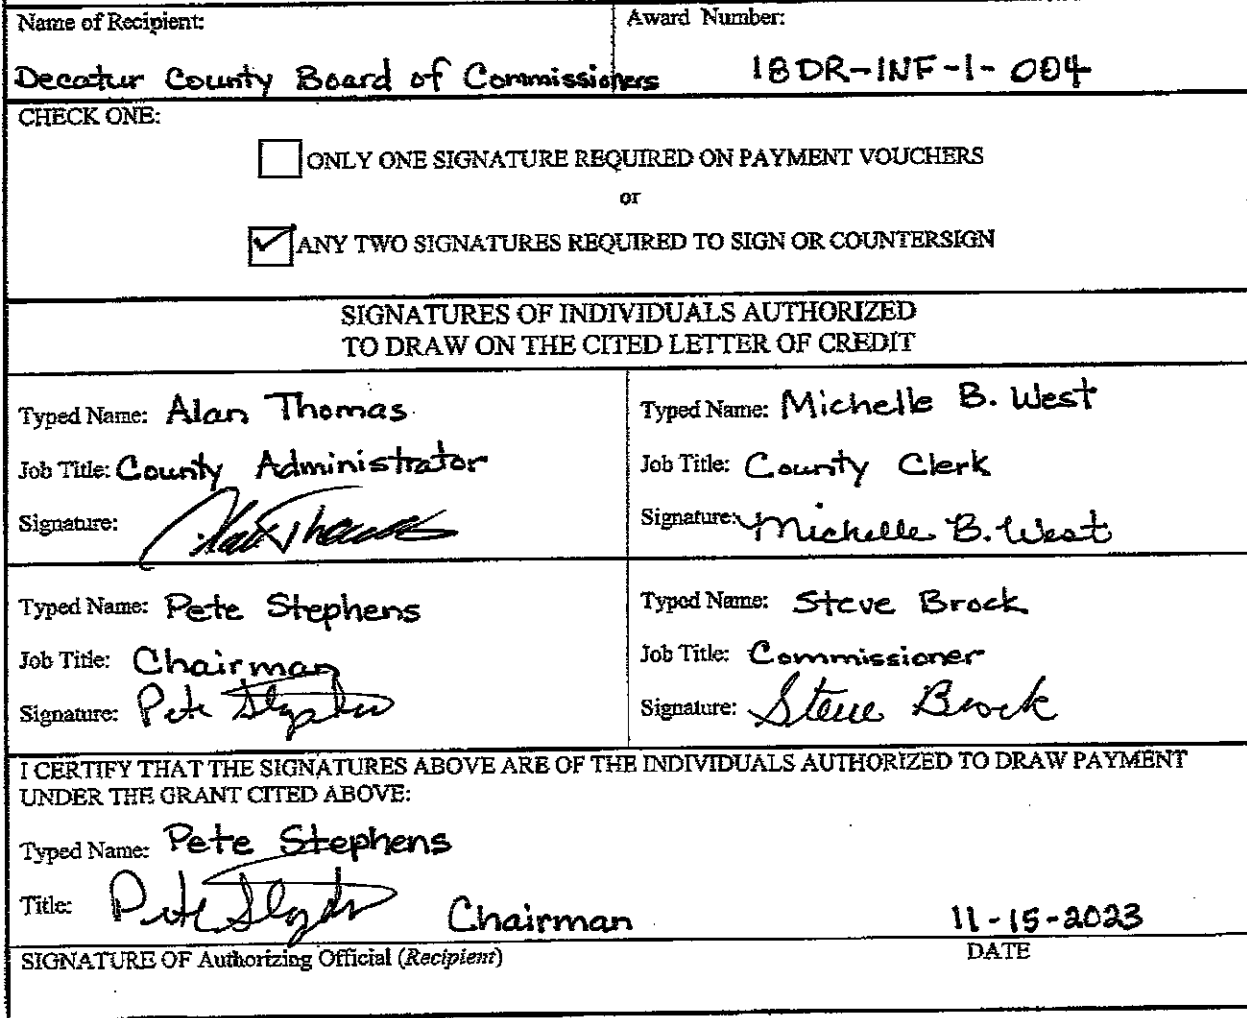 Name of Recipient: Award Number:
Decatur County Board of Commissioners 18DR-INF-1-004
CHECK ONE:
ONLY ONE SIGNATURE REQUIRED ON PAYMENT VOUCHERS
or
ANY TWO SIGNATURES REQUIRED TO SIGN OR COUNTERSIGN
SIGNATURES OF INDIVIDUALS AUTHORIZED
TO DRAW ON THE CITED LETTER OF CREDIT
Typed Name: Alan Thomas
Job Title: County Administrator
Signature: Alan Thomas
Typed Name: Michelle B. West
Job Title: County Clerk
Signature: Michelle B. West
Typed Name: Pete Stephens
Job Title: Chairman
Signature: Pete Stephens
Typed Name: Steve Brock
Job Title: Commissioner
Signature: Steve Brock
I CERTIFY THAT THE SIGNATURES ABOVE ARE OF THE INDIVIDUALS AUTHORIZED TO DRAW PAYMENT
UNDER THE GRANT CITED ABOVE:
Typed Name: Pete Stephens
Title: Pete Stephens Chairman 11-15-2023
SIGNATURE OF Authorizing Official (Recipient) DATE